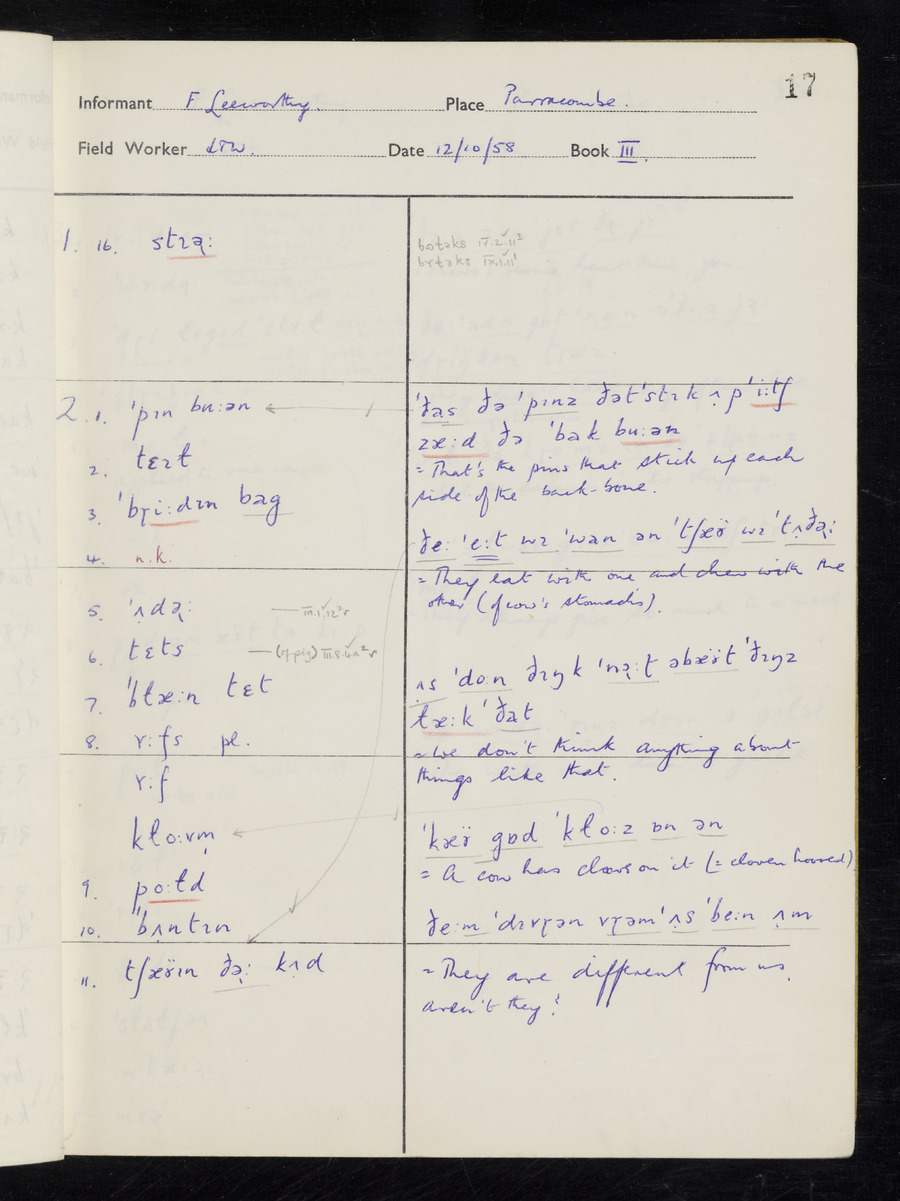 17
Informant F Leeworthy. Place Parracombe.
Field Worker DTW. Date 12/10/58 Book III.
1. 16. stɹə̣:
2. 1. ˈpɪn bu:ən
2. tɛɪt
3. ˈbɽi:dɪn bag
4. n.k.
5. ˈʌdə̣: — III.1.12² r
6. tɛts — (of pig) III.8.4a² r
7. ˈbłæ:n tɛt
8. ʏ:fs pl.
ʏ:f
kło:vm̩
9. po:łd
10. ˈbʌntɪn
11. tʃæÿɪn ðə̣: kʌd
IV.2.11²
IX.1.11¹
ˈðas ðə ˈpɪnz ðətˈstɪk ʌpˈi:tʃ
zæ:d ðə ˈbak bu:ən
= That's the pins that stick up each
side of the back-bone.
ðe: ˈe:t wɪ ˈwan ən ˈtʃæÿ wɪ ˈtʌðə̣:
= They eat with one and chew with the
other (of cow's stomachs).
ʌs ˈdo:n ðɪŋk ˈnə̣:t əbæÿt ˈðɪŋz
læ:k ˈðat
= We don't think anything about
things like that.
ˈkæÿ gɒd ˈkło:z ɒn ən
= A cow has claws on it (= cloven hooved)
ðe:m ˈdɪvɽən vɽəmˈʌs ˈbe:n ʌm
= They are different from us,
aren't they?